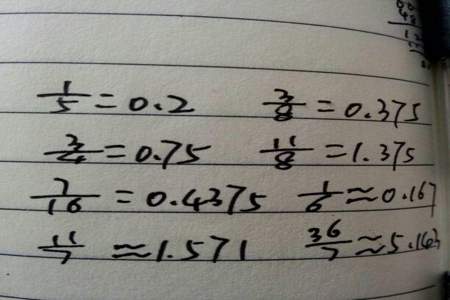 1/5 = 0.2 3/8 = 0.375
3/4 = 0.75 11/8 = 1.375
7/16 = 0.4375 1/6 ≈ 0.167
11/7 ≈ 1.571 36/7 ≈ 5.143